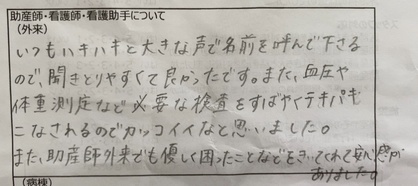 助産師・看護師・看護助手について
(外来)
いつもハキハキと大きな声で名前を呼んで下さる
ので、聞きとりやすくて良かったです。また、血圧や
体重測定など必要な検査をすばやくテキパキ
こなされるのでカッコイイなと思いました。
また、助産師外来でも優しく困ったことなどをきいてくれて安心感が
ありました。
(病棟)